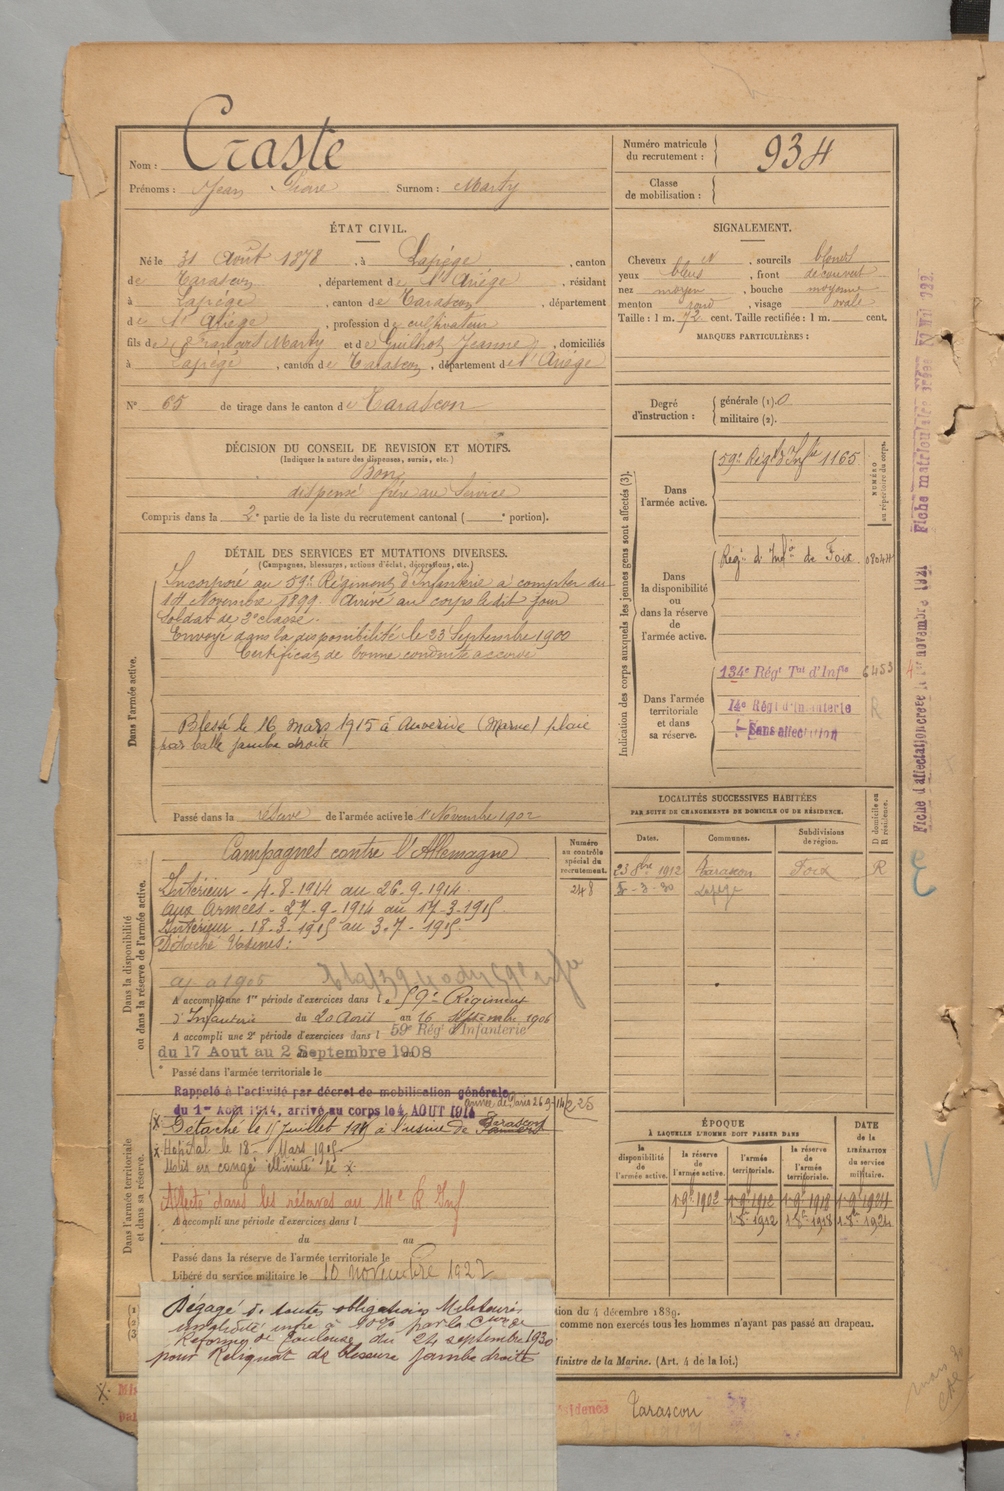 Nom : Craste
Prénoms : Jean Pierre Surnom : Marty
Numéro matricule du recrutement : 934
Classe de mobilisation :
ÉTAT CIVIL.
Né le 31 Août 1878, à Lapège, canton
de Tarascon, département de l'Ariège, résidant
à Lapège, canton de Tarascon, département
de l'Ariège, profession de cultivateur
fils de François Marty et de Guilhot Jeanne, domiciliés
à Lapège, canton de Tarascon, département de l'Ariège
N° 65 de tirage dans le canton de Tarascon
SIGNALEMENT.
Cheveux et, sourcils blonds
yeux bleus, front découvert
nez moyen, bouche moyenne
menton rond, visage ovale
Taille : 1 m. 72 cent. Taille rectifiée : 1 m. cent.
MARQUES PARTICULIÈRES :
Degré d'instruction : générale (1). 0
militaire (2).
DÉCISION DU CONSEIL DE REVISION ET MOTIFS.
(Indiquer la nature des dispenses, sursis, etc.)
Bon
dispensé frère au service
Compris dans la 2e partie de la liste du recrutement cantonal ( e portion).
DÉTAIL DES SERVICES ET MUTATIONS DIVERSES.
(Campagnes, blessures, actions d'éclat, décorations, etc.)
Dans l'armée active.
Incorporé au 59e Régiment d'Infanterie à compter du
14 Novembre 1899. Arrivé au corps le dit jour
Soldat de 2e classe.
Envoyé dans la disponibilité le 23 Septembre 1900
Certificat de bonne conduite accordé
Blessé le 16 mars 1915 à Auverive (Marne) plaie
par balle jambe droite
Passé dans la réserve de l'armée active le 1r Novembre 1902
Indication des corps auxquels les jeunes gens sont affectés (3).
NUMÉRO au répertoire du corps.
Dans l'armée active.
59e Régt d'Infie 1165
Dans la disponibilité ou dans la réserve de l'armée active.
Régt d'Infie de Foix 0804H
Dans l'armée territoriale et dans sa réserve.
134e Régt Tal d'Infie 6453
14e Régt d'Infanterie R
Sans affectation
Fiche d'affectation créée le 1er novembre 1921
Fiche matriculaire créée
LOCALITÉS SUCCESSIVES HABITÉES
PAR SUITE DE CHANGEMENTS DE DOMICILE OU DE RÉSIDENCE.
Dates. Communes. Subdivisions de région. D domicile ou R résidence.
23 8bre 1912 Tarascon Foix R
5-3-30 Lapège
Dans la disponibilité ou dans la réserve de l'armée active.
Numéro au contrôle spécial du recrutement.
248
Campagnes contre l'Allemagne
Intérieur - 4.8.1914 au 26.9.1914.
Aux Armées - 27.9.1914 au 17.3.1915.
Intérieur - 18.3.1915 au 3.7.1915.
Détaché Usines :
aj à 1905
A accompli une 1re période d'exercices dans le 59e Régiment
d'Infanterie du 20 Août au 16 Septembre 1906
A accompli une 2e période d'exercices dans l 59e Régt d'Infanterie
du 17 Aout au 2 Septembre 1908
Passé dans l'armée territoriale le
Dans l'armée territoriale et dans sa réserve.
Rappelé à l'activité par décret de mobilisation générale
du 1er Août 1914, arrivé au corps le 4 AOUT 1914
225
Détaché le Juillet 1915 à l'usine de Tarascon
Hôpital le 18 Mars 1915
Affecté dans les réserves au 14e R. Inf
A accompli une période d'exercices dans l
du au
Passé dans la réserve de l'armée territoriale le
Libéré du service militaire le 10 novembre 1927
ÉPOQUE
À LAQUELLE L'HOMME DOIT PASSER DANS
DATE de la LIBÉRATION du service militaire.
la disponibilité de l'armée active. la réserve de l'armée active. l'armée territoriale. la réserve de l'armée territoriale.
1-9-1902 1-9-1912 1-9-1918 1-9-1924
1-8-1912 1-8-1918 1-8-1924
Dégagé de toutes obligations Militaires
invalidité infre à 10% par la Cion de
Réforme de Toulouse du 24 septembre 1930
pour Reliquat de blessure jambe droite
tion du 4 décembre 1889.
comme non exercés tous les hommes n'ayant pas passé au drapeau.
Ministre de la Marine. (Art. 4 de la loi.)
résidence Tarascon